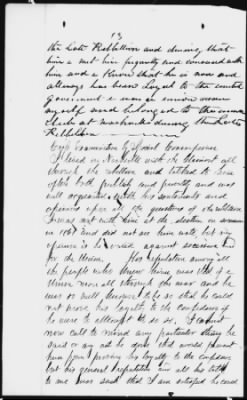 13
the Late Rebellion and during that
time I met him frequently and conversed with
him and I know that he is now and
always has been Loyal to the united
Government I was a union woman
myself and belonged to the union
club at Nashville during the Late
Rebellion
Cross Examination by Special Commissioner
I lived in Nashville with the claimant all
through the rebellion and talked to him
often both publicly and privately and was
well acquainted with his sentiments and
opinions upon all the questions of the rebellion
I was not with him at the election on
in 1861 and did not see him vote, but my
opinion is he voted against secession and
for the Union. His reputation among all
the people who knew him was that of a
Union man all through the war and he
was so well known to be so that he could
not prove his loyalty to the confederacy if
he were to attempt to do so, I cannot
now call to mind any particular thing he
said or any act he done that would prevent
him from proving his loyalty to the confederacy
but his general reputation and all his talk
to me was such that I am satisfied he could